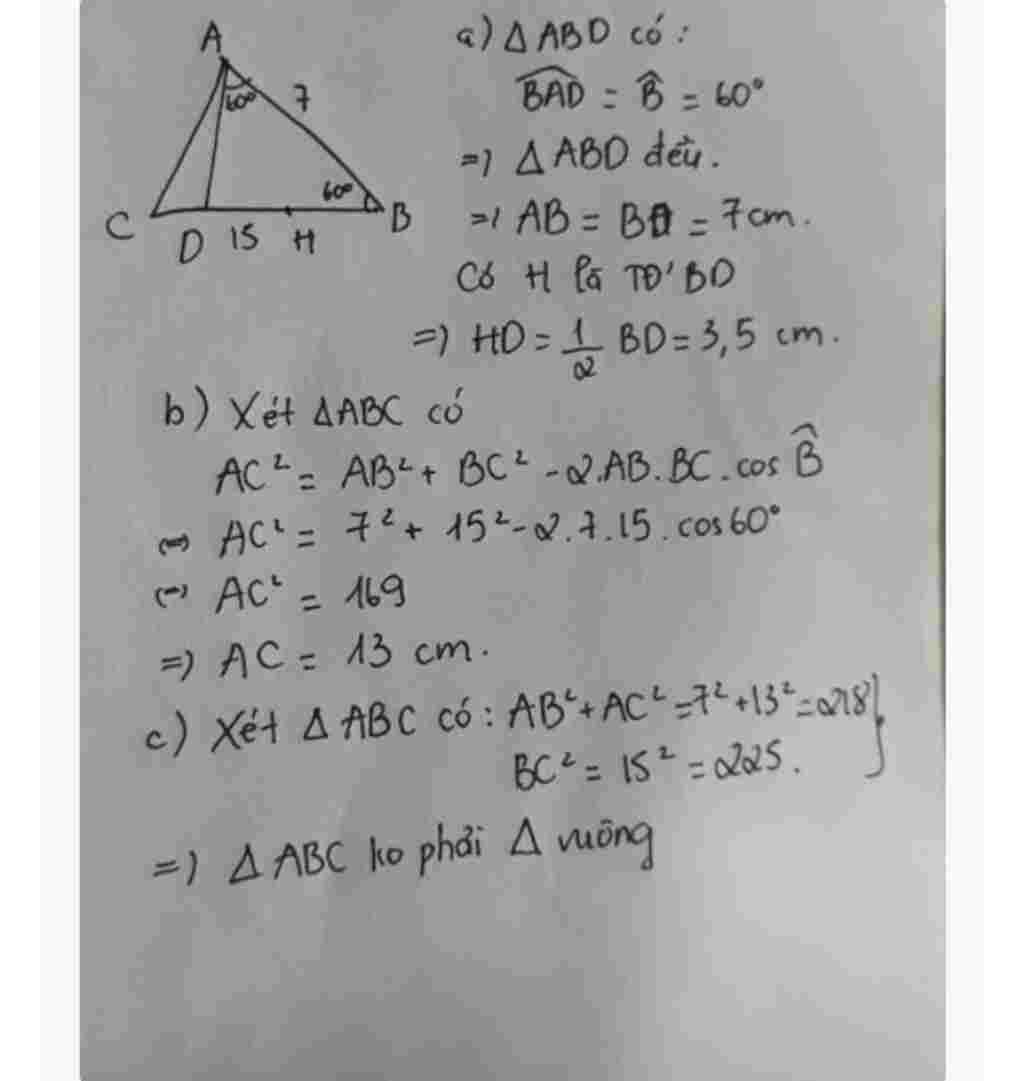 A
60°
7
60°
C
D
15
H
B
a) Δ ABD có :
BAD = B̂ = 60°
=) Δ ABD đều.
=) AB = BD = 7cm.
Có H là TĐ' BD
=) HD = 1/2 BD = 3,5 cm.
b) Xét ΔABC có
AC² = AB² + BC² - 2.AB.BC.cos B̂
(=) AC² = 7² + 15² - 2.7.15.cos60°
(=) AC² = 169
=) AC = 13 cm.
c) Xét Δ ABC có : AB² + AC² = 7² + 13² = 218
BC² = 15² = 225.
=) Δ ABC ko phải Δ vuông